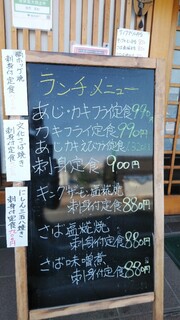 ランチメニュー
あじ・カキフライ定食 990円
カキフライ定食 990円
あじカキえびフライ定食
刺身定食 900円
キングサーモン西京焼
刺身付定食 880円
さば塩焼
刺身付定食 880
さば味噌煮
刺身付定食 880
縞ホッケ焼
刺身付定食
文化さば焼き
刺身付定食
にしん三五八焼き
刺身付定食